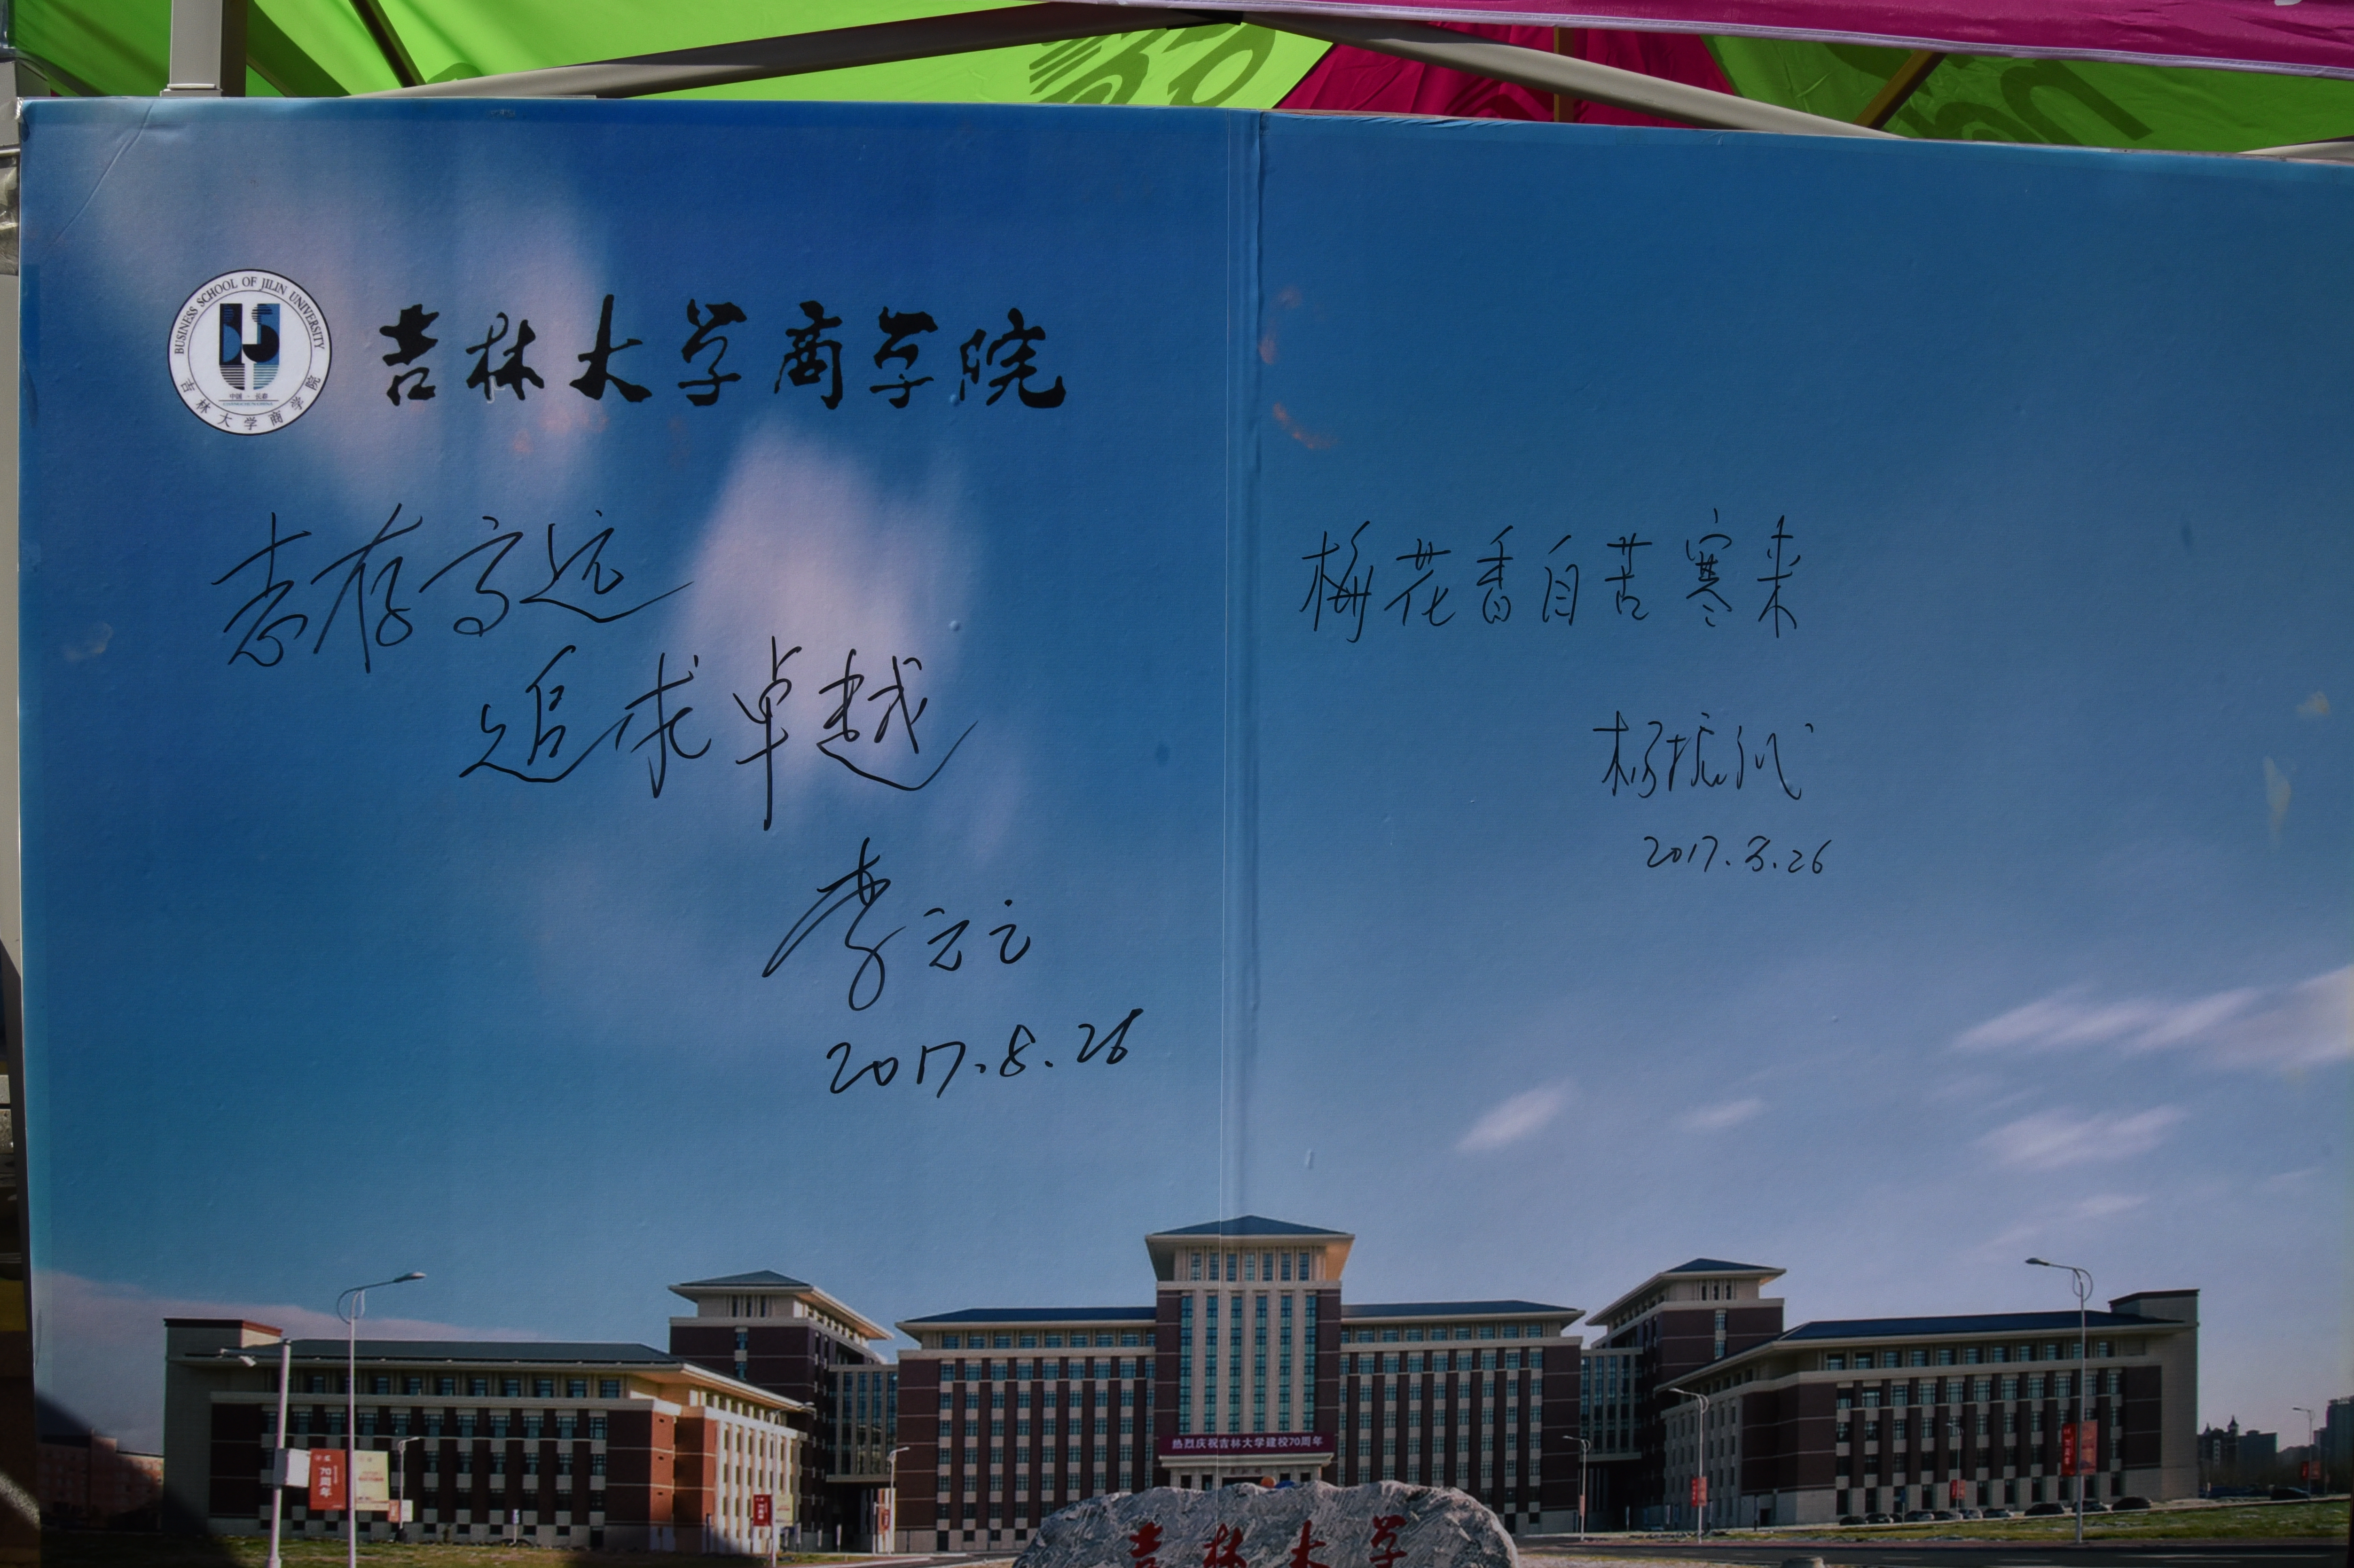 BUSINESS SCHOOL OF JILIN UNIVERSITY
中国·长春
吉林大学商学院
吉林大学商学院
志存高远
追求卓越
李元元
2017.8.26
梅花香自苦寒来
杨振斌
2017.8.26
热烈庆祝吉林大学建校70周年
70周年
吉林大学